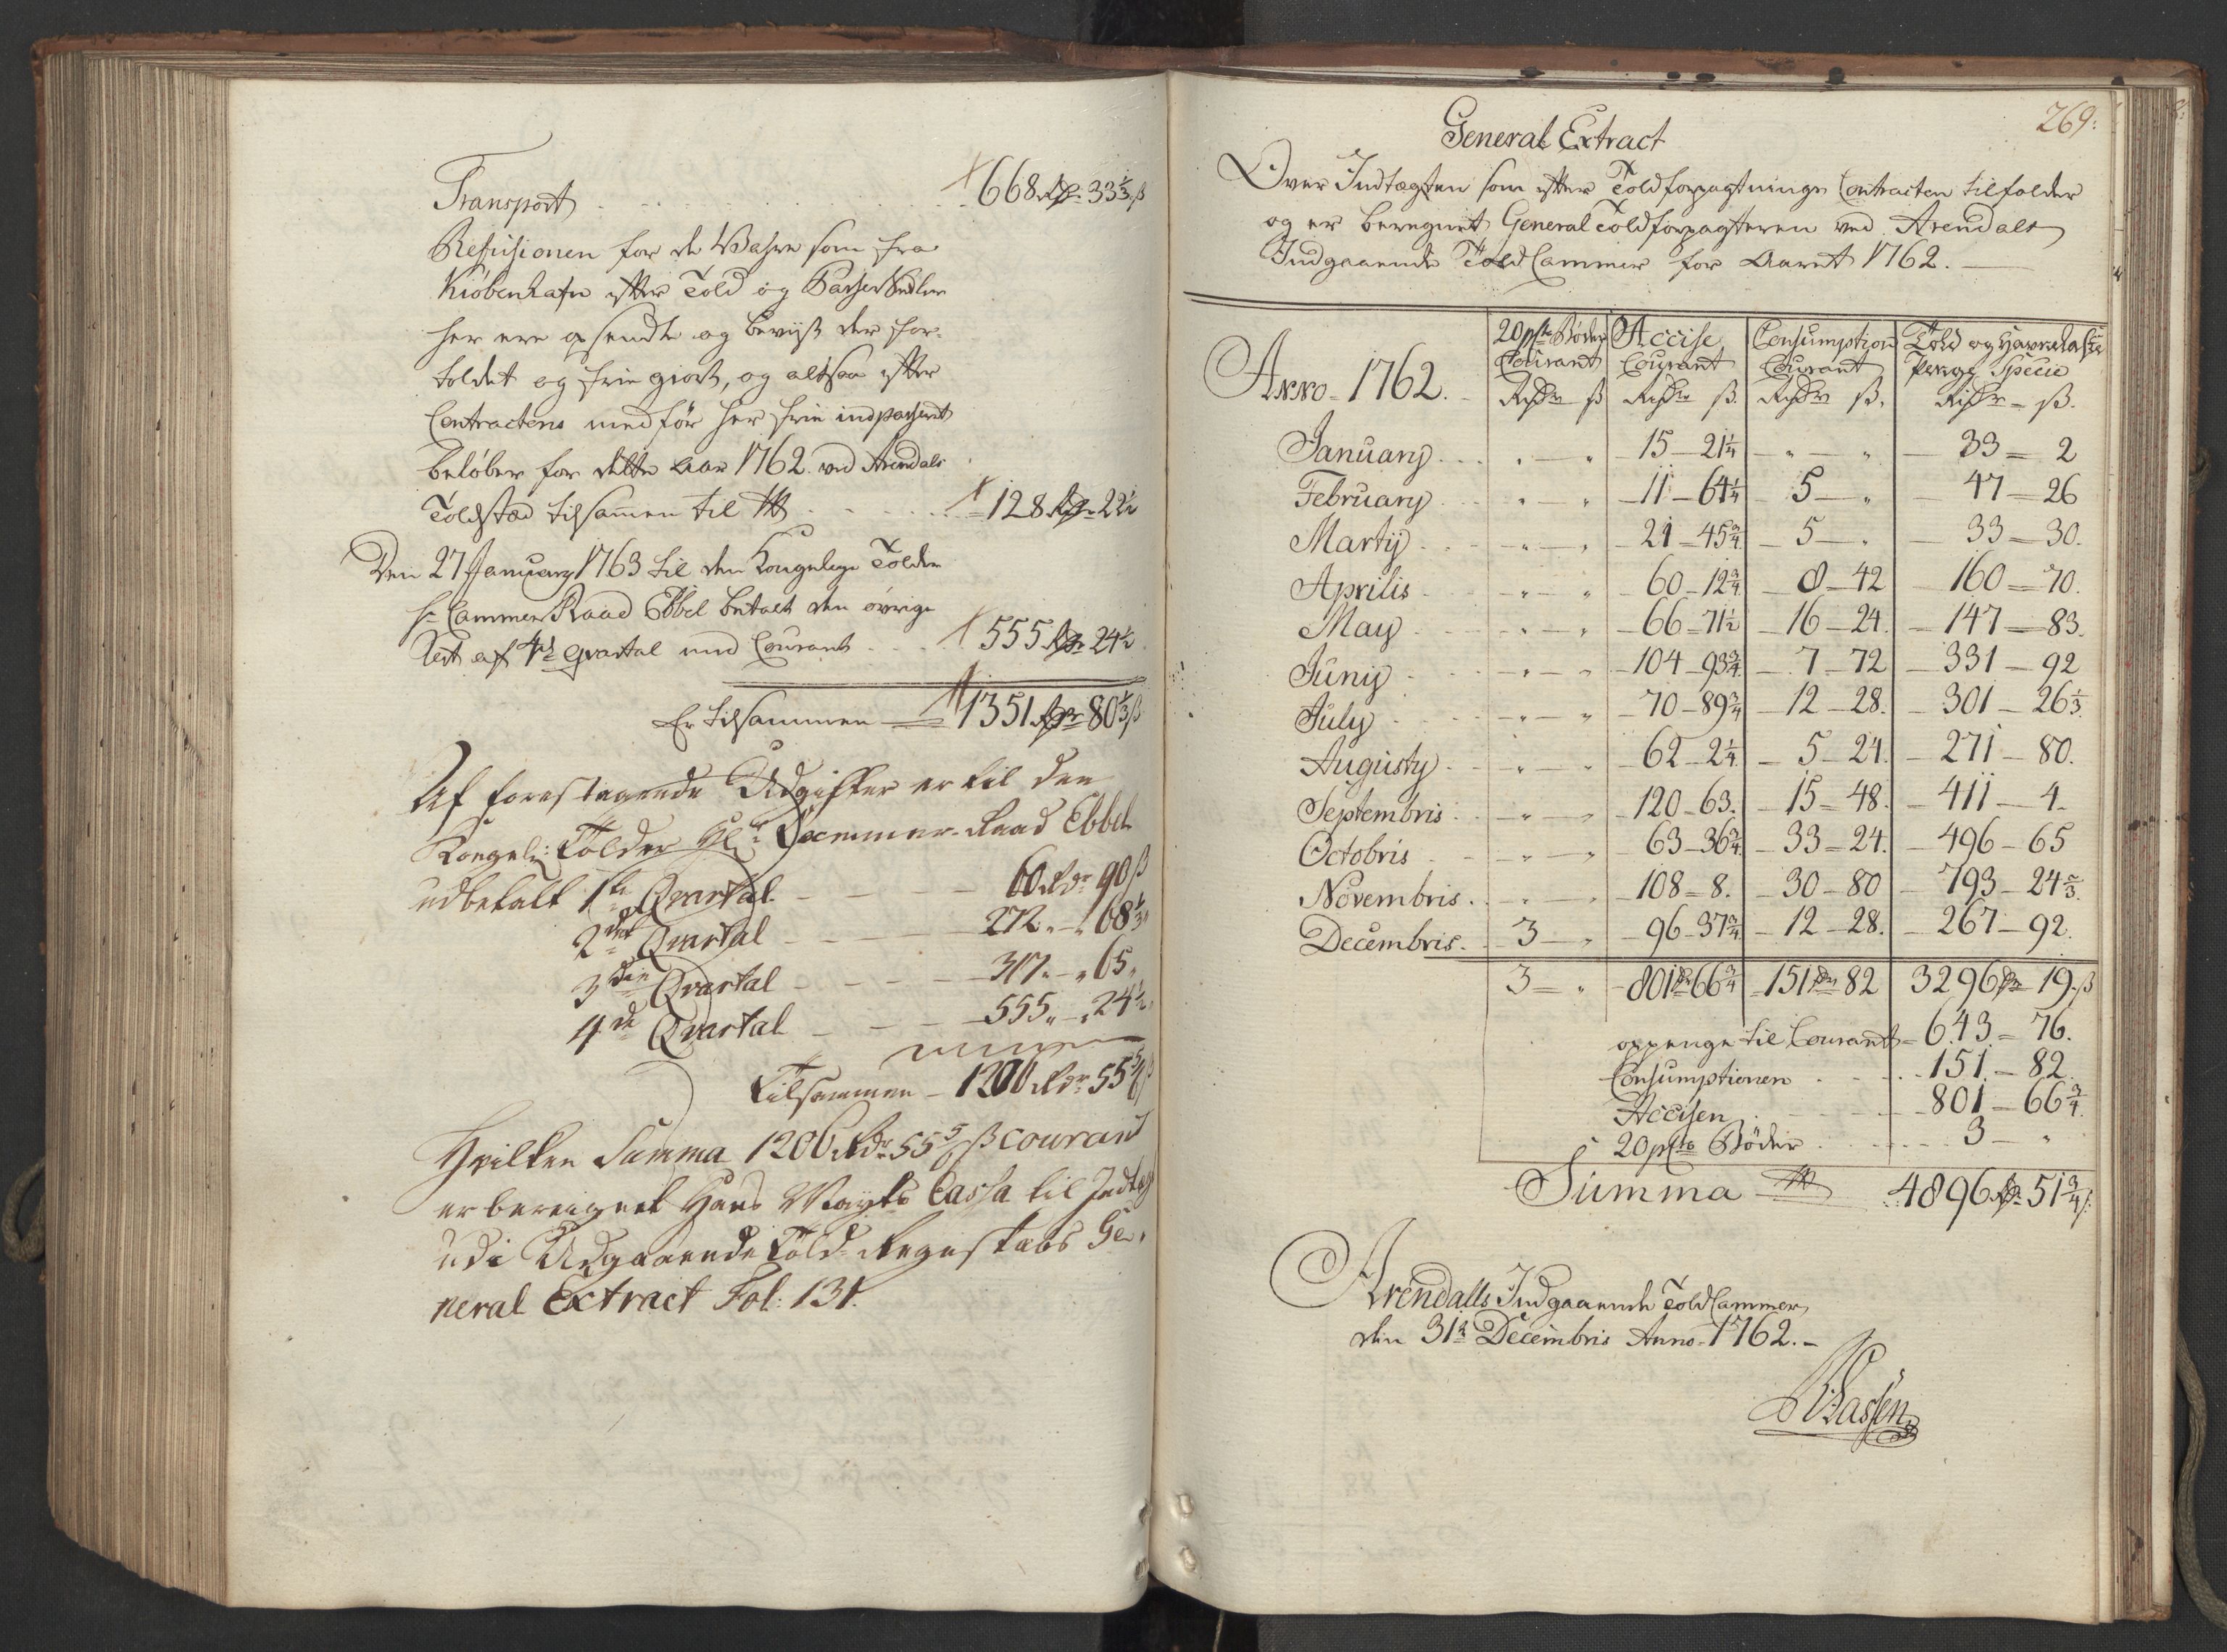 Transport . . . 668 Rdr 33⅓ ß
Refusionen for de Wahre som fra
Kiøbenhafn efter Told og Passer Sedler
her ere opsendte og beviist der for-
toldet og frie giort, og altsaa efter
Contractens medfør her frie indpasseret
beløber for dette Aar 1762 ved Arendals
Toldsted tilsammen til . . . 128 Rdr 22½
Den 27 January 1763 til den Kongelige Tolder
Hr Cammer Raad Ebbel betalt den øvrige
Rest af 4de Qvartal med Courant . . . 555 Rdr 24½
Er tilsammen 1351 Rdr 80⅓ ß
Af forestaaende Udgifter er til den
Kongel: Tolder Hr. Cammer-Raad Ebbel
udbetalt 1te Qvartal — 60 Rdr 90 ß
2det Qvartal — 272 „ — „ 68⅓ „
3die Qvartal — 317 „ — „ 65 „
4de Qvartal — 555 „ — „ 24½ „
Tilsammen — 1206 Rdr 55⅚ ß
Hvilken Summa 1206 Rdr 55⅚ ß courant
er beregnet Hans Mayts Cassa til Indtægt
udi Udgaaende Told-Regnskabs Ge-
neral Extract Fol: 131.
269.
General Extract
Over Indtægten som efter Toldforpagtnings Contracten tilfalder
og er beregnet General Toldforpagteren ved Arendals
Indgaaende Told Cammer for Aaret 1762. —
Anno 1762. 20 pCto Bøder Courant Rixdr ß | Accise Courant Rixdr ß. | Consumption Courant Rixdr ß. | Told og Havnelaste Penge Specie Rixdr - ß.
January . . „ — „ 15 — 21¼ „ — „ 33 — 2
February . „ — „ 11 — 64¼ 5 — „ 47 — 26
Martij . . „ — „ 21 — 45¾ 5 — „ 33 — 30.
Aprilis . „ — „ 60 — 12¾ 8 — 42 160 — 70.
May . „ — „ 66 — 71½ 16 — 24. 147 — 83.
Junij . „ — „ 104 — 93¾ 7 — 72 331 — 92
July . „ — „ 70 — 89¾ 12 — 28. 301 — 26⅓.
Augusty . „ — „ 62 — 2¼ 5 — 24. 271 — 80.
Septembris . „ — „ 120 — 63. 15 — 48. 411 — 4.
Octobris . „ — „ 63 — 36¾ 33 — 24. 496 — 65
Novembris . „ — „ 108 — 8. 30 — 80 793 — 24⅔.
Decembris. 3 — „ 96 — 37¾ 12 — 28. 267 — 92.
3 — „ 801 Rdr 66¾ 151 Rdr 82 3296 Rdr 19. ß
oppenge til Courant — 643 — 76.
Consumptionen . . . 151. — 82.
Accisen . . . 801 — 66¾.
20 pCto Bøder . . . 3 — „
Summa 4896 Rdr 51¾ ß.
Arendalls Indgaaende Told Cammer
den 31te Decembris Anno 1762. —